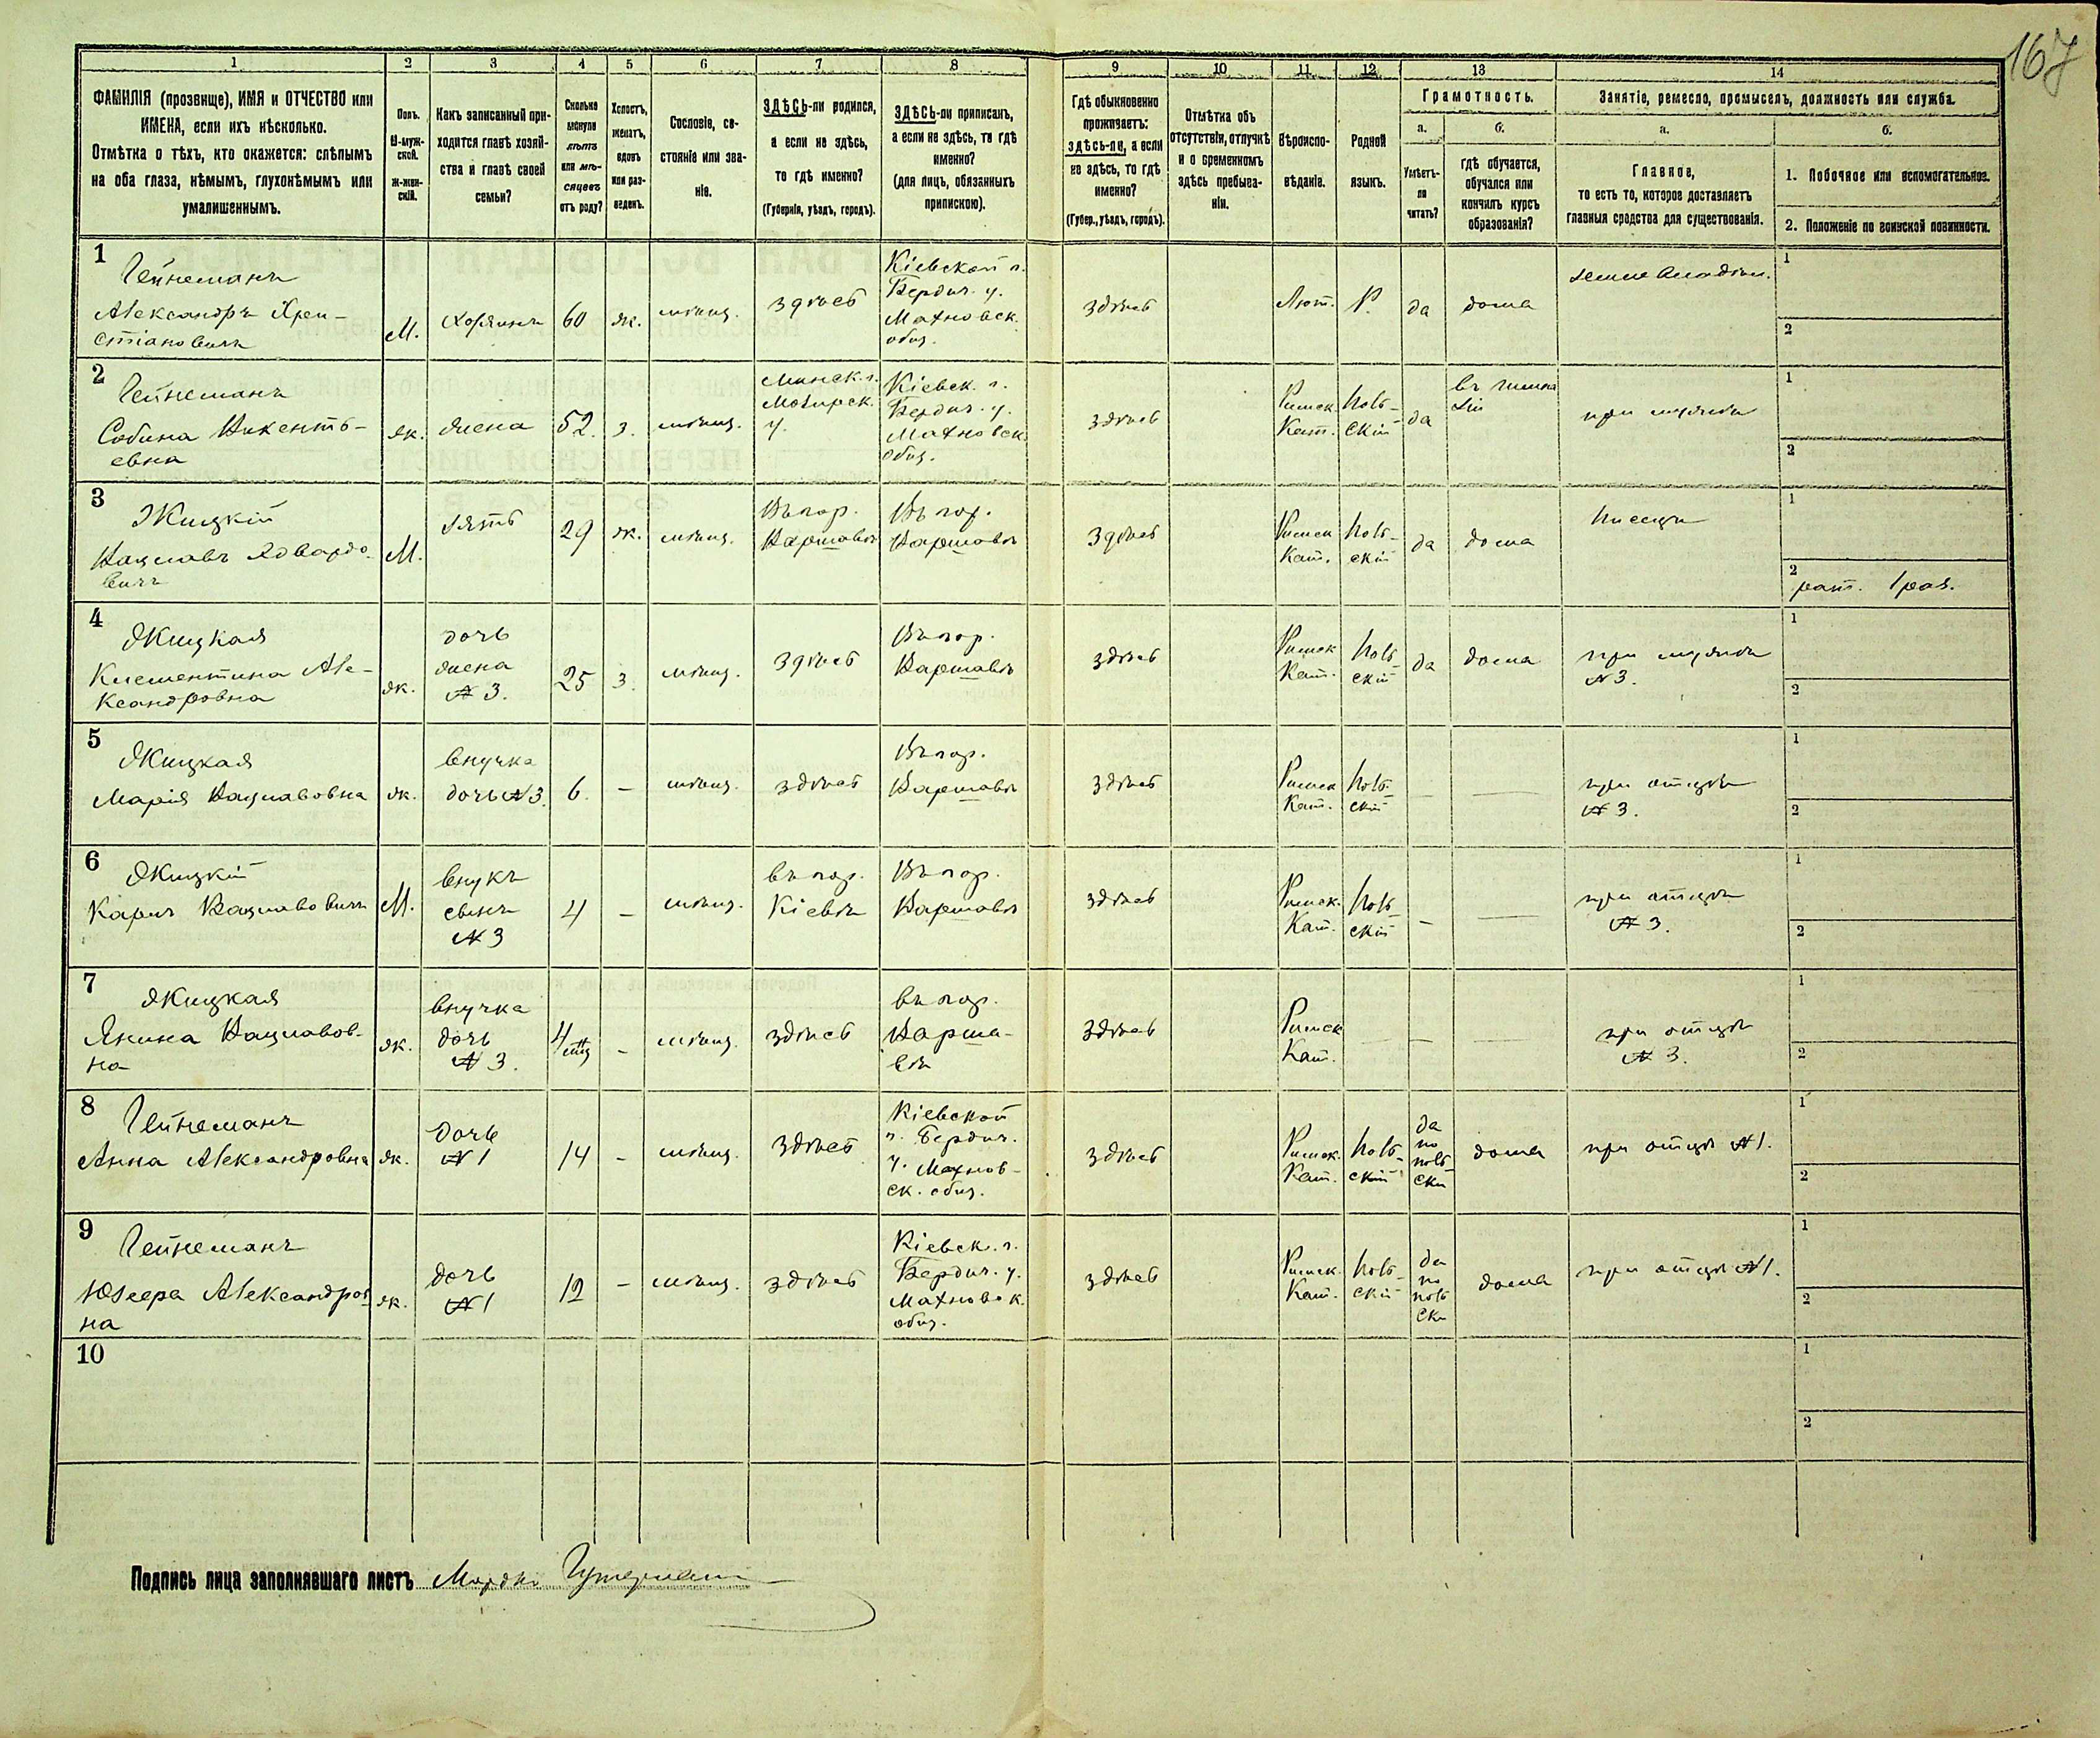 167
1 2 3 4 5 6 7 8 9 10 11 12 13 14
ФАМИЛІЯ (прозвище), ИМЯ и ОТЧЕСТВО или
ИМЕНА, если ихъ нѣсколько.
Отмѣтка о тѣхъ, кто окажется: слѣпымъ
на оба глаза, нѣмымъ, глухонѣмымъ или
умалишеннымъ.
Полъ.
М-муж-
ской.
Ж-жен-
скій.
Какъ записанный при-
ходится главѣ хозяй-
ства и главѣ своей
семьи?
Сколько
минуло
лѣтъ
или мѣ-
сяцевъ
отъ роду?
Холостъ,
женатъ,
вдовъ
или раз-
веденъ.
Сословіе, со-
стояніе или зва-
ніе.
ЗДѢСЬ-ли родился,
а если не здѣсь,
то гдѣ именно?
(Губернія, уѣздъ, городъ).
ЗДѢСЬ-ли приписанъ,
а если не здѣсь, то гдѣ
именно?
(для лицъ, обязанныхъ
припискою).
Гдѣ обыкновенно
проживаетъ:
здѣсь-ли, а если
не здѣсь, то гдѣ
именно?
(Губер., уѣздъ, городъ).
Отмѣтка объ
отсутствіи, отлучкѣ
и о временномъ
здѣсь пребыва-
ніи.
Вѣроиспо-
вѣданіе.
Родной
языкъ.
Грамотность.
а.
Умѣетъ-
ли
читать?
б.
гдѣ обучается,
обучался или
кончилъ курсъ
образованія?
Занятіе, ремесло, промыселъ, должность или служба.
а.
Главное,
то есть то, которое доставляетъ
главныя средства для существованія.
б.
1. Побочное или вспомогательное.
2. Положеніе по воинской повинности.
1
Гейнеманъ
Александръ Хрис-
тіановичъ
М.
Хозяинъ
60
ж.
мѣщ.
здѣсь
Кіевской г.
Бердич. у.
Махновск.
общ.
здѣсь
Лют.
Р.
да
дома
1
2
2
Гейнеманъ
Сабина Викенть-
евна
ж.
жена
52.
з.
мѣщ.
Минск. г.
Мозырск.
у.
Кіевск. г.
Бердич. у.
Махновск.
общ.
здѣсь
Римск.
Кат.
Поль-
скій
да
въ гимна
зіи
при мужѣ
1
2
3
Жицкій
Вацлавъ Эдвардо-
вичъ
М.
зять
29
ж.
мѣщ.
Въ гор.
Варшавѣ
Въ гор.
Варшавѣ
здѣсь
Римск
Кат.
Поль-
скій
да
дома
Писецъ
1
2
рат. 1 раз.
4
Жицкая
Клементина Але-
ксандровна
ж.
дочь
жена
№ 3.
25
з.
мѣщ.
здѣсь
Въ гор.
Варшавѣ
здѣсь
Римск
Кат.
Поль-
скій
да
дома
при мужѣ
№ 3.
1
2
5
Жицкая
Марія Вацлавовна
ж.
внучка
дочь № 3.
6.
–
мѣщ.
здѣсь
Въ гор.
Варшавѣ
здѣсь
Римск
Кат.
Поль-
скій
–
–
при отцѣ
№ 3.
1
2
6
Жицкій
Карлъ Вацлавовичъ
М.
внукъ
сынъ
№ 3
4
–
мѣщ.
въ гор.
Кіевѣ
Въ гор.
Варшавѣ
здѣсь
Римск.
Кат.
Поль-
скій
–
–
при отцѣ
№ 3.
1
2
7
Жицкая
Янина Вацлавов-
на
ж.
внучка
дочь
№ 3.
4 мц
–
мѣщ.
здѣсь
въ гор.
Варша-
вѣ
здѣсь
Римск
Кат.
–
–
–
при отцѣ
№ 3.
1
2
8
Гейнеманъ
Анна Александровна
ж.
дочь
№ 1
14
–
мѣщ.
здѣсь
Кіевской
г. Бердич.
у. Махнов-
ск. общ.
здѣсь
Римск.
Кат.
Поль-
скій
да
по
поль-
ски
дома
при отцѣ № 1.
1
2
9
Гейнеманъ
Юзефа Александров
на
ж.
дочь
№ 1
12
–
мѣщ.
здѣсь
Кіевск. г.
Бердич. у.
Махновск.
общ.
здѣсь
Римск.
Кат.
Поль-
скій
да
по
поль
ски
дома
при отцѣ № 1.
1
2
10
1
2
Подпись лица заполнявшаго листъ Мордко Гутерман